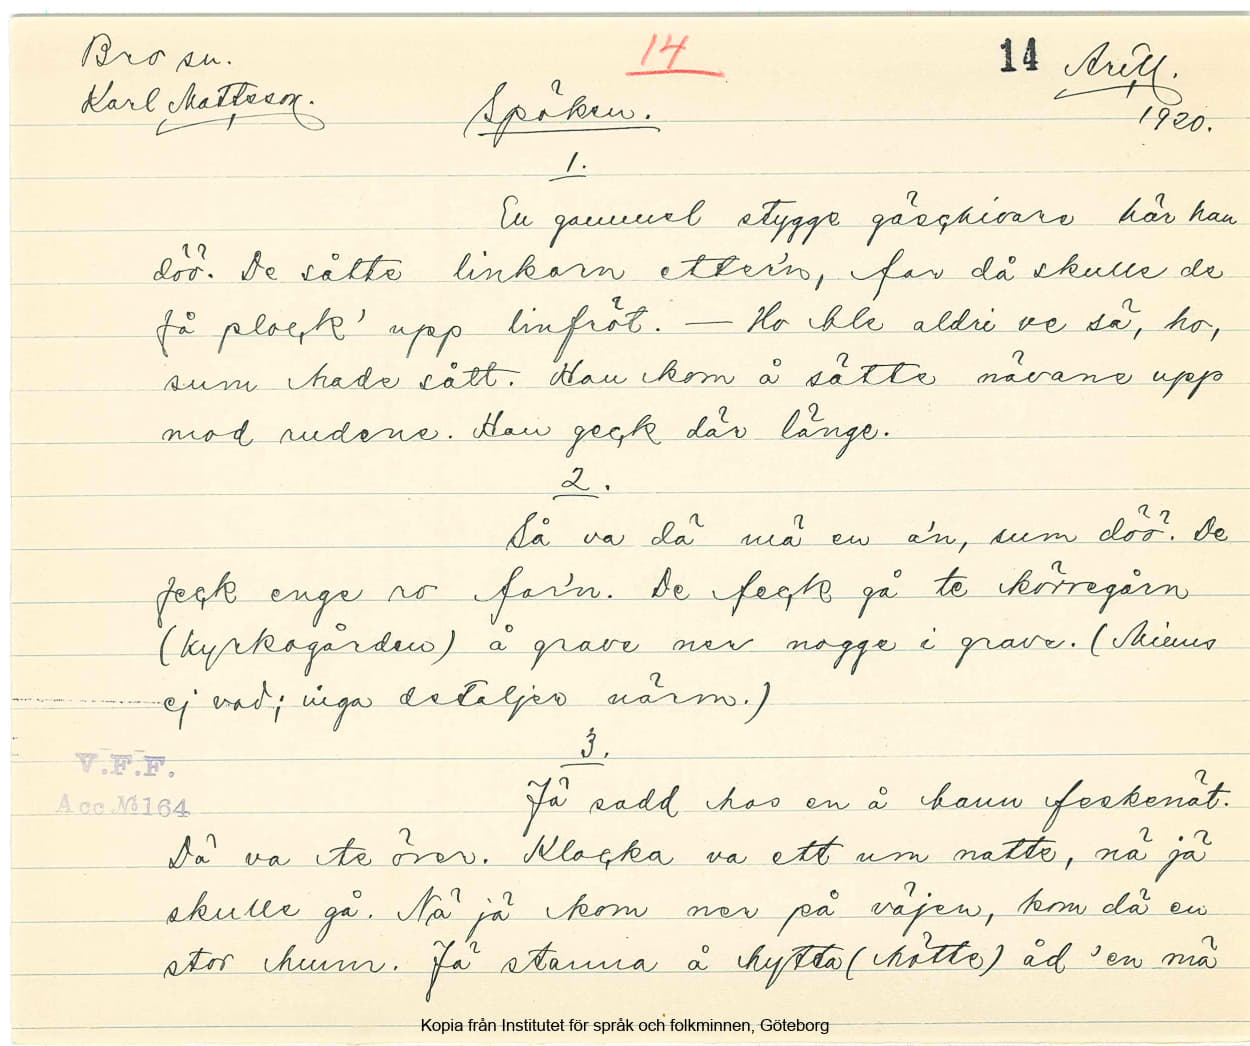 Bro sn.
Karl Mattsson.
14
14
Arill.
1920.
Spöken.
1.
En gammel stygge gäsçhivare här han
döö. De sätte linkorn etter'n, for då skulle de
få ploçk' upp linfröt. — Ho ble aldri ve sä, ho,
sum hade sått. Han kom å sätte nävane upp
mod rudene. Han geçk där länge.
2.
Så va dä mä en a'n, sum döö. De
feçk enge ro for'n. De feçk gå te körregårn
(kyrkogården) å grave ner nogge i grave. (Minns
ej vad; inga detaljer närm.)
3.
Jä sadd hos en å bann feskenät.
Dä va te över. Kloçka va ett um natte, nä jä
skulle gå. Nä jä kom ner på väjen, kom dä en
stor hunn. Jä stanna å hytta (hötte) åd 'en mä
V.F.F.
Acc № 164
Kopia från Institutet för språk och folkminnen, Göteborg